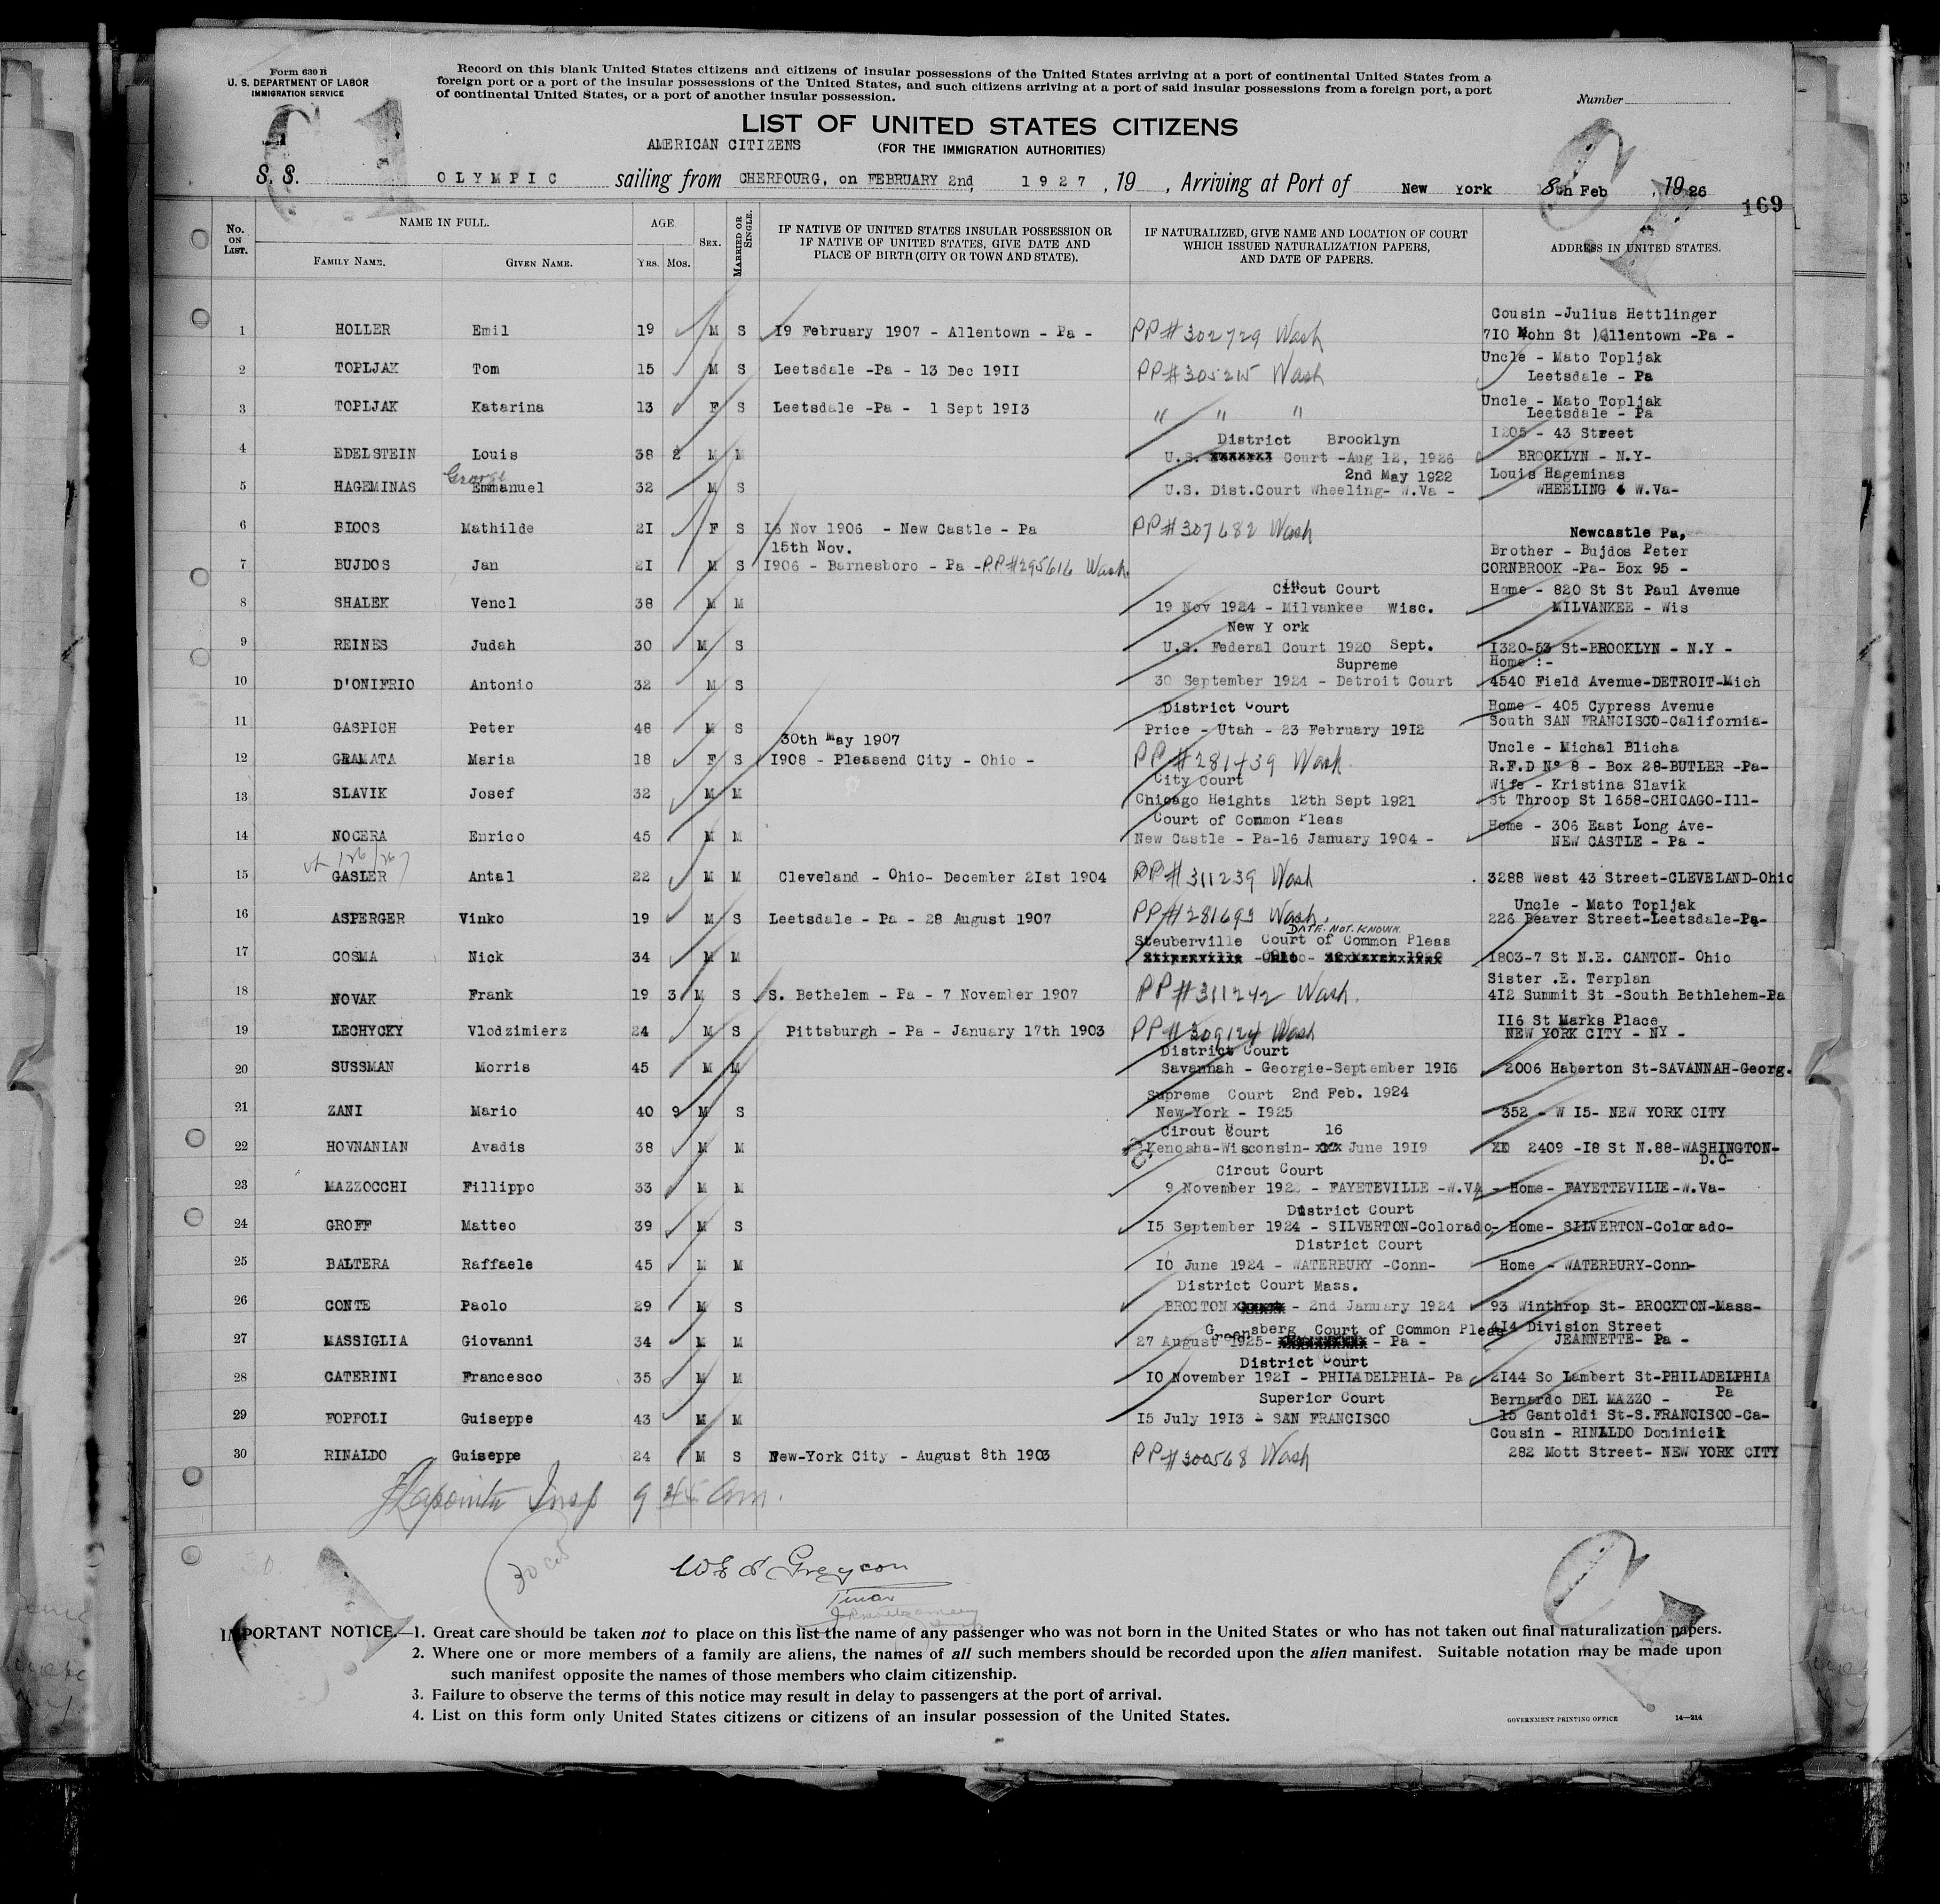 Form 630 B
U. S. DEPARTMENT OF LABOR
IMMIGRATION SERVICE
Record on this blank United States citizens and citizens of insular possessions of the United States arriving at a port of continental United States from a
foreign port or a port of the insular possessions of the United States, and such citizens arriving at a port of said insular possessions from a foreign port, a port
of continental United States, or a port of another insular possession.
Number
LIST OF UNITED STATES CITIZENS
AMERICAN CITIZENS (FOR THE IMMIGRATION AUTHORITIES)
S. S. OLYMPIC sailing from CHERBOURG, on FEBRUARY 2nd, 1927, 19 , Arriving at Port of New York 8th Feb , 1926
169
No. ON LIST. NAME IN FULL. FAMILY NAME. GIVEN NAME. AGE. YRS. MOS. SEX. MARRIED OR SINGLE. IF NATIVE OF UNITED STATES INSULAR POSSESSION OR IF NATIVE OF UNITED STATES, GIVE DATE AND PLACE OF BIRTH (CITY OR TOWN AND STATE). IF NATURALIZED, GIVE NAME AND LOCATION OF COURT WHICH ISSUED NATURALIZATION PAPERS, AND DATE OF PAPERS. ADDRESS IN UNITED STATES.
Cousin -Julius Hettlinger
1 HOLLER Emil 19 M S 19 February 1907 - Allentown - Pa - PP# 302729 Wash 710 Mohn St )Allentown -Pa -
Uncle - Mato Topljak
2 TOPLJAK Tom 15 M S Leetsdale -Pa - 13 Dec 1911 PP# 305215 Wash Leetsdale - Pa
Uncle - Mato Topljak
3 TOPLJAK Katarina 13 F S Leetsdale -Pa - 1 Sept 1913 " " " Leetsdale - Pa
District Brooklyn 1205 - 43 Street
4 EDELSTEIN Louis 38 2 M M U.S. Court -Aug 12, 1926 BROOKLYN - N.Y-
George 2nd May 1922 Louis Hageminas
5 HAGEMINAS Emmanuel 32 M S U.S. Dist.Court Wheeling- W.Va - WHEELING W.Va-
6 BIOOS Mathilde 21 F S 16 Nov 1906 - New Castle - Pa PP# 307682 Wash Newcastle Pa,
15th Nov. Brother - Bujdos Peter
7 BUJDOS Jan 21 M S 1906 - Barnesboro - Pa -PP#295616 Wash. CORNBROOK -Pa- Box 95 -
Circut Court Home - 820 St St Paul Avenue
8 SHALEK Vencl 38 M M 19 Nov 1924 - Milvankee Wisc. MILVANKEE - Wis
New Y ork
9 REINES Judah 30 M S U.S. Federal Court 1920 Sept. 1320-53 St-BROOKLYN - N.Y -
Supreme Home :-
10 D'ONIFRIO Antonio 32 M S 30 September 1924 - Detroit Court 4540 Field Avenue-DETROIT-Mich
District Court Home - 405 Cypress Avenue
11 GASPICH Peter 48 M S Price - Utah - 23 February 1912 South SAN FRANCISCO-California-
30th May 1907 Uncle - Michal Blicha
12 GRAMATA Maria 18 F S 1908 - Pleasend City - Ohio - PP# 281439 Wash. R.F.D Nº 8 - Box 28-BUTLER -Pa-
City Court Wife - Kristina Slavik
13 SLAVIK Josef 32 M M Chicago Heights 12th Sept 1921 St Throop St 1658-CHICAGO-Ill-
Court of Common Pleas Home - 306 East Long Ave-
14 NOCERA Enrico 45 M M New Castle - Pa-16 January 1904 - NEW CASTLE - Pa -
15 GASLER Antal 22 M M Cleveland - Ohio- December 21st 1904 PP# 311239 Wash 3288 West 43 Street-CLEVELAND-Ohio
Uncle - Mato Topljak
16 ASPERGER Vinko 19 M S Leetsdale - Pa - 28 August 1907 PP# 281693 Wash. 226 Beaver Street-Leetsdale-Pa-
DATE. NOT. KNOWN.
Steuberville Court of Common Pleas
17 COSMA Nick 34 M M -Ohio- 1803-7 St N.E. CANTON- Ohio
Sister .E. Terplan
18 NOVAK Frank 19 3 M S S. Bethelem - Pa - 7 November 1907 PP# 311242 Wash. 412 Summit St -South Bethlehem-Pa
116 St Marks Place
19 LECHYCKY Vlodzimierz 24 M S Pittsburgh - Pa - January 17th 1903 PP# 309124 Wash NEW YORK CITY - NY -
District Court
20 SUSSMAN Morris 45 M M Savannah - Georgie-September 1916 2006 Haberton St-SAVANNAH-Georg.
Supreme Court 2nd Feb. 1924
21 ZANI Mario 40 9 M S New-York - 1925 352 - W 15- NEW YORK CITY
Circut Court 16
22 HOVNANIAN Avadis 38 M M Kenosha-Wisconsin- xxx June 1919 2409 -18 St N.88-WASHINGTON-
D.C-
Circut Court
23 MAZZOCCHI Fillippo 33 M M 9 November - FAYETEVILLE -W.VA - Home- FAYETTEVILIE-W.Va-
District Court
24 GROFF Matteo 39 M S 15 September 1924 - SILVERTON-Colorado- Home- SILVERTON-Colorado-
District Court
25 BALTERA Raffaele 45 M M 10 June 1924 - WATERBURY -Conn- Home - WATERBURY-Conn-
District Court Mass.
26 CONTE Paolo 29 M S BROCTON - 2nd January 1924 93 Winthrop St- BROCKTON-Mass-
Greensberg Court of Common Pleas 414 Division Street
27 MASSIGLIA Giovanni 34 M M 27 August 1925- - Pa - JEANNETTE- Pa -
District Court
28 CATERINI Francesco 35 M M 10 November 1921 - PHILADELPHIA- Pa 2144 So Lambert St-PHILADELPHIA
Pa
Superior Court Bernardo DEL MAZZO -
29 FOPPOLI Guiseppe 43 M M 15 July 1913 - SAN FRANCISCO 15 Gantoldi St-S.FRANCISCO-Ca-
Cousin - RINALDO Dominicik
30 RINALDO Guiseppe 24 M S New-York City - August 8th 1903 PP# 300568 Wash 282 Mott Street- NEW YORK CITY
Insp 9
30
IMPORTANT NOTICE.—1. Great care should be taken not to place on this list the name of any passenger who was not born in the United States or who has not taken out final naturalization papers.
2. Where one or more members of a family are aliens, the names of all such members should be recorded upon the alien manifest. Suitable notation may be made upon
such manifest opposite the names of those members who claim citizenship.
3. Failure to observe the terms of this notice may result in delay to passengers at the port of arrival.
4. List on this form only United States citizens or citizens of an insular possession of the United States.
GOVERNMENT PRINTING OFFICE 14—214